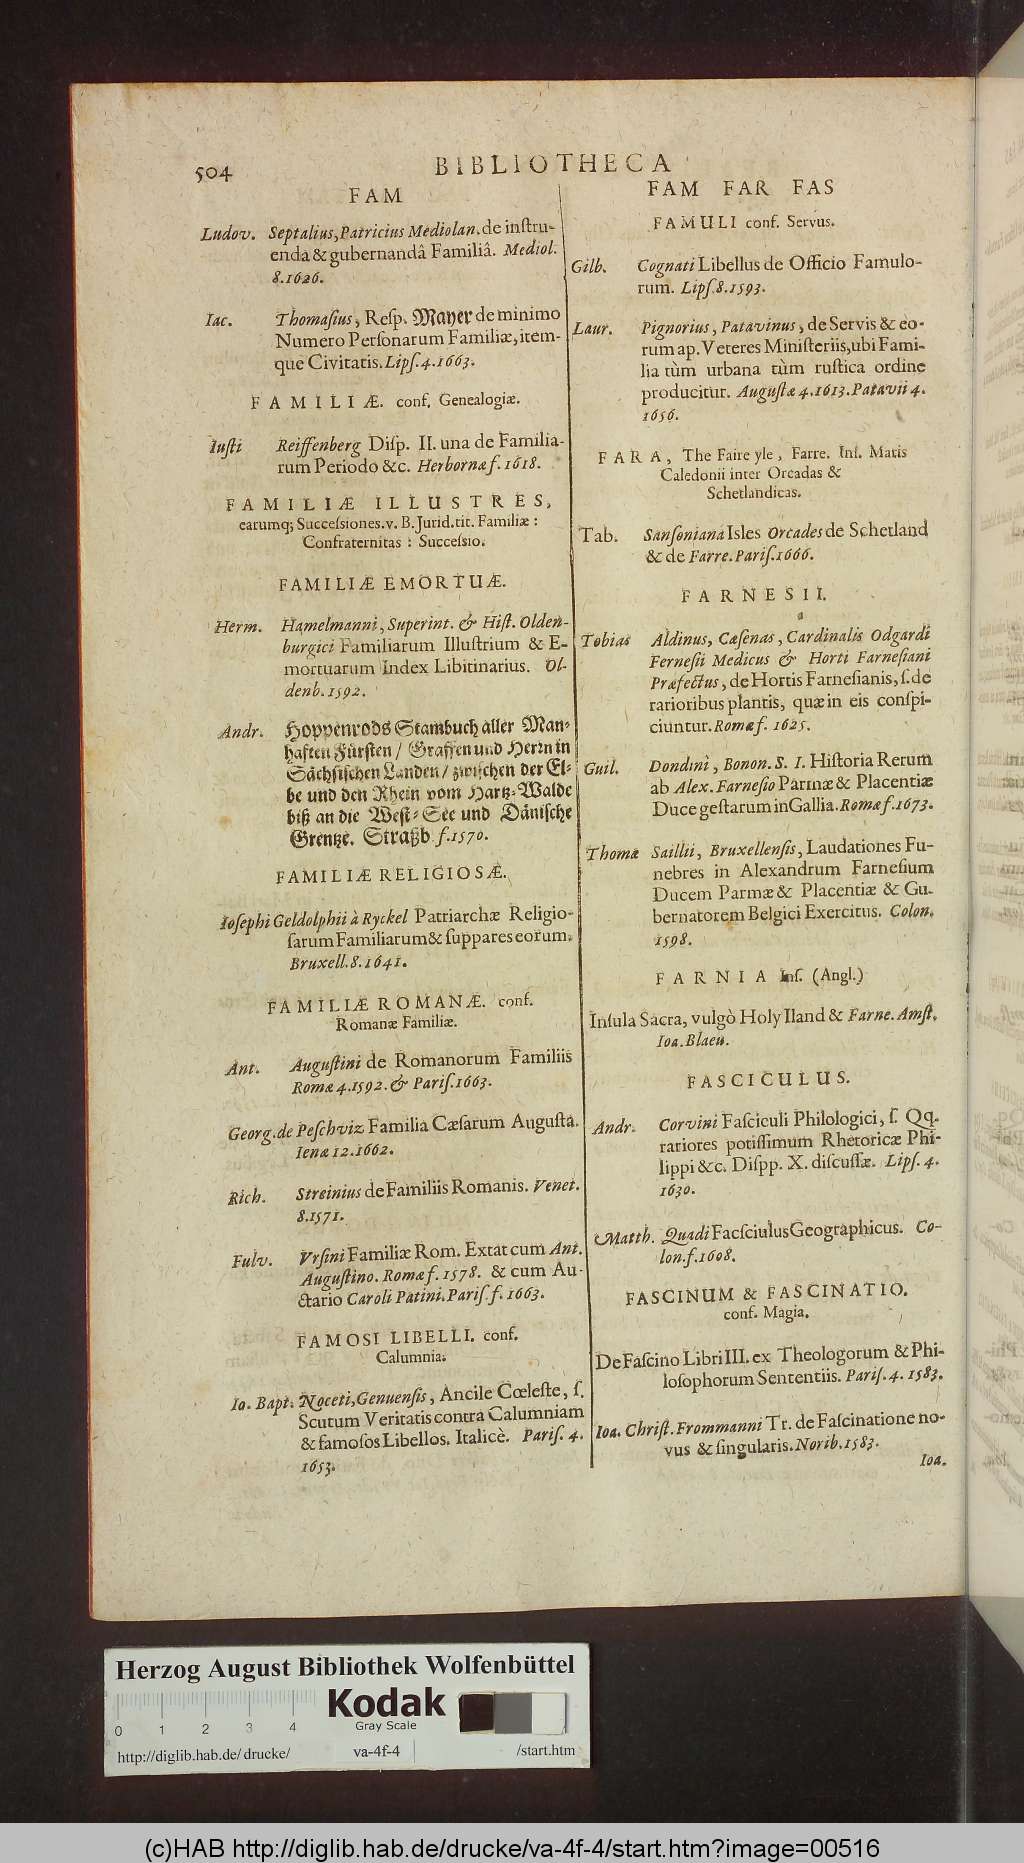 504
BIBLIOTHECA
FAM
Ludov. Septalius, Patricius Mediolan. de inſtru-
enda & gubernandâ Familiâ. Mediol.
8. 1626.
Iac. Thomaſius, Reſp. Mayer de minimo
Numero Perſonarum Familiæ, item-
que Civitatis. Lipſ. 4. 1663.
FAMILIÆ. conf. Genealogiæ.
Iuſti Reiffenberg Diſp. II. una de Familia-
rum Periodo &c. Herbornæ f. 1618.
FAMILIÆ ILLUSTRES,
earumq; Succeſſiones. v. B. Jurid. tit. Familiæ :
Confraternitas : Succeſsio.
FAMILIÆ EMORTUÆ.
Herm. Hamelmanni, Superint. & Hiſt. Olden-
burgici Familiarum Illuſtrium & E-
mortuarum Index Libitinarius. Ol-
denb. 1592.
Andr. Hoppenrods Stambuch aller Man-
haften Fürſten / Graffen und Herrn in
Sächſiſchen Landen / zwiſchen der El-
be und den Rhein vom Hartz-Walde
biß an die Weſt-See und Däniſche
Grentze. Straßb f. 1570.
FAMILIÆ RELIGIOSÆ.
Ioſephi Geldolphii à Ryckel Patriarchæ Religio-
ſarum Familiarum & ſuppares eorum.
Bruxell. 8. 1641.
FAMILIÆ ROMANÆ. conf.
Romanæ Familiæ.
Ant. Auguſtini de Romanorum Familiis
Romæ 4. 1592. & Pariſ. 1663.
Georg. de Peſchviz Familia Cæſarum Auguſta.
Ienæ 12. 1662.
Rich. Streinius de Familiis Romanis. Venet.
8. 1571.
Fulv. Vrſini Familiæ Rom. Extat cum Ant.
Auguſtino. Romæ f. 1578. & cum Au-
ctario Caroli Patini. Pariſ. f. 1663.
FAMOSI LIBELLI. conf.
Calumnia.
Io. Bapt. Noceti, Genuenſis, Ancile Cœleſte, ſ.
Scutum Veritatis contra Calumniam
& famoſos Libellos. Italicè. Pariſ. 4.
1653.
FAM FAR FAS
FAMULI conf. Servus.
Gilb. Cognati Libellus de Officio Famulo-
rum. Lipſ. 8. 1593.
Laur. Pignorius, Patavinus, de Servis & eo-
rum ap. Veteres Miniſteriis, ubi Fami-
lia tùm urbana tùm ruſtica ordine
producitur. Auguſtæ 4. 1613. Patavii 4.
1656.
FARA, The Faire yle, Farre. Inſ. Maris
Caledonii inter Orcadas &
Schetlandicas.
Tab. Sanſoniana Isles Orcades de Schetland
& de Farre. Pariſ. 1666.
FARNESII.
Tobias Aldinus, Cæſenas, Cardinalis Odgardi
Ferneſii Medicus & Horti Farneſiani
Præfectus, de Hortis Farneſianis, ſ. de
rarioribus plantis, quæ in eis conſpi-
ciuntur. Romæ f. 1625.
Guil. Dondini, Bonon. S. I. Hiſtoria Rerum
ab Alex. Farneſio Parmæ & Placentiæ
Duce geſtarum in Gallia. Romæ f. 1673.
Thomæ Saillii, Bruxellenſis, Laudationes Fu-
nebres in Alexandrum Farneſium
Ducem Parmæ & Placentiæ & Gu-
bernatorem Belgici Exercitus. Colon.
1598.
FARNIA Inſ. (Angl.)
Inſula Sacra, vulgò Holy Iland & Farne. Amſt.
Ioa. Blaeu.
FASCICULUS.
Andr. Corvini Faſciculi Philologici, ſ. Qq.
rariores potiſſimum Rhetoricæ Phi-
lippi &c. Diſpp. X. diſcuſſæ. Lipſ. 4.
1630.
Matth. Quadi Facſciulus Geographicus. Co-
lon. f. 1608.
FASCINUM & FASCINATIO.
conf. Magia.
De Faſcino Libri III. ex Theologorum & Phi-
loſophorum Sententiis. Pariſ. 4. 1583.
Ioa. Chriſt. Frommanni Tr. de Faſcinatione no-
vus & ſingularis. Norib. 1583.
Ioa.
Herzog August Bibliothek Wolfenbüttel
Kodak
Gray Scale
0 1 2 3 4
http://diglib.hab.de/ drucke/ va-4f-4 /start.htm
(c)HAB http://diglib.hab.de/drucke/va-4f-4/start.htm?image=00516